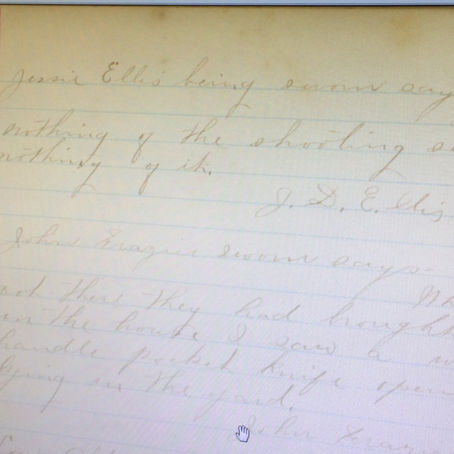 Jessie Ellis being sworn say
nothing of the shooting
nothing of it.
J. D. Ellis
John Frazier sworn says
got there they had brought
in the house I saw a
handle pocket knife open
lying in the yard.
John Frazi